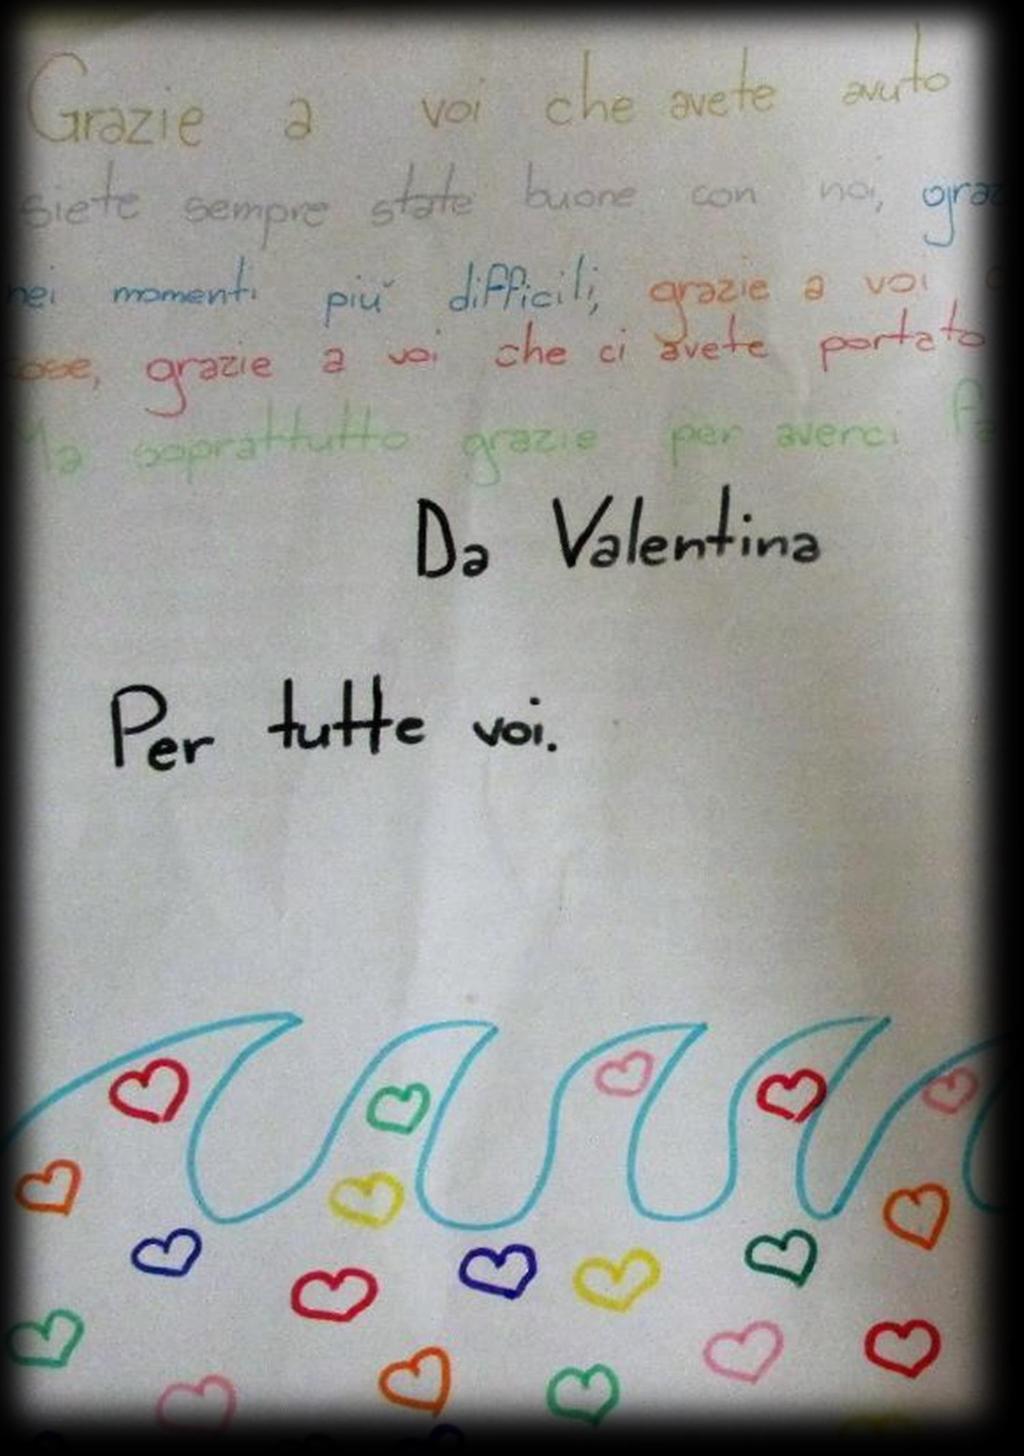 Grazie a voi che avete avuto
siete sempre state buone con noi, graz
nei momenti piu' difficili, grazie a voi
ose, grazie a voi che ci avete portato
Ma soprattutto grazie per averci fa
Da Valentina
Per tutte voi.